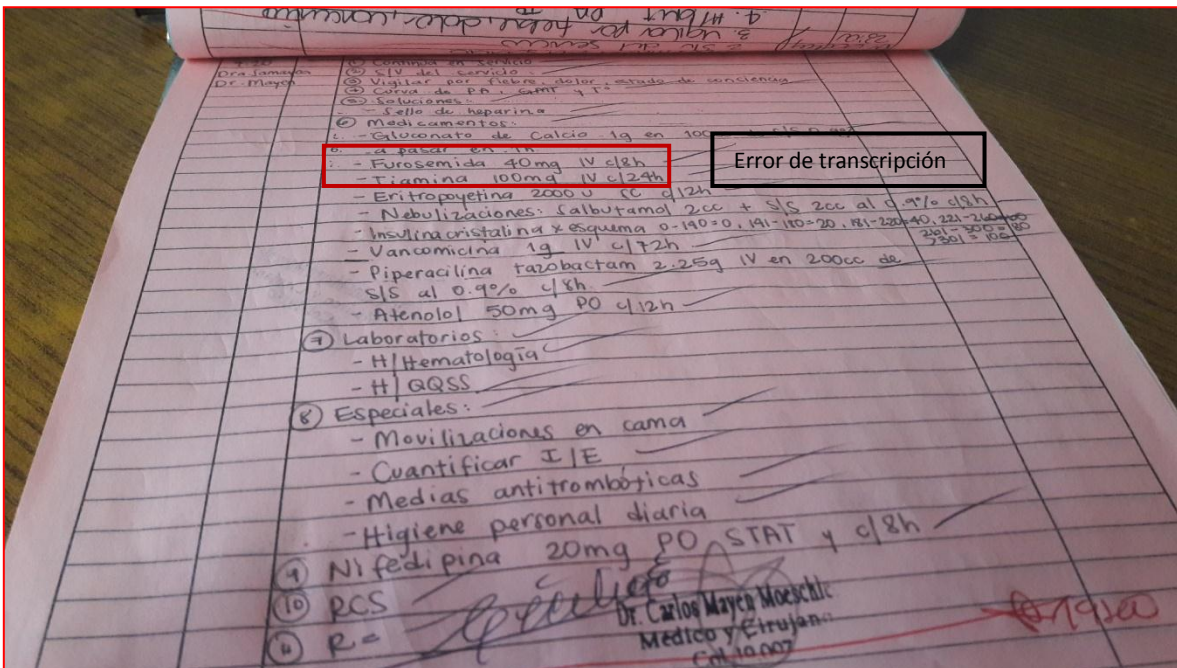 4. H/ but en
3. Vigilar por fiebre, dolor, conciencia
2. S/V del servicio
Dra Samayoa
Dr. Mayen
① Continua en servicio
② S/V del servicio
③ Vigilar por fiebre, dolor, estado de conciencia
④ Curva de PA, GMT y T°
⑤ Soluciones:
- Sello de heparina
⑥ Medicamentos:
- Gluconato de Calcio 1g en 100
a pasar en 1h
- Furosemida 40mg IV c/8h
Error de transcripción
- Tiamina 100mg IV c/24h
- Eritropoyetina 2000 U SC c/12h
- Nebulizaciones: Salbutamol 2cc + S/S 2cc al 0.9% c/8h
- Insulina cristalina x esquema 0-140=0, 141-180=20, 181-220=40, 221-260=60
261-300=80
>301=100
- Vancomicina 1g IV c/72h
- Piperacilina tazobactam 2.25g IV en 200cc de
S/S al 0.9% c/8h
- Atenolol 50mg PO c/12h
⑦ Laboratorios:
- H/Hematología
- H/QQSS
⑧ Especiales:
- Movilizaciones en cama
- Cuantificar I/E
- Medias antitrombóticas
- Higiene personal diaria
⑨ Nifedipina 20mg PO STAT y c/8h
⑩ RCS
⑪ R=
Dr. Carlos Mayen Moeschle
Médico y Cirujano
Col. 19,007